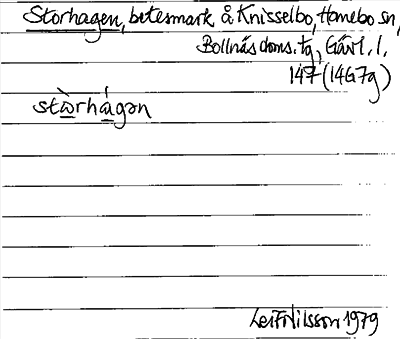 Storhagen, betesmark å Knisselbo, Hanebo sn,
Bollnäs doms. tg, Gävl. l.
147 (14G7g)
stòrhágən
Leif Nilsson 1979